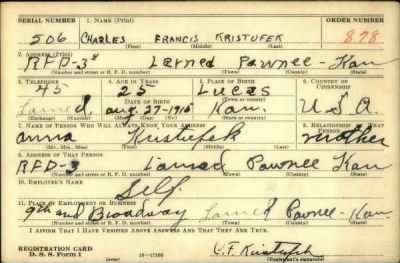 SERIAL NUMBER 1. NAME (Print) ORDER NUMBER
506 CHARLES FRANCIS KRISTUFEK 878
(First) (Middle) (Last)
2. ADDRESS (Print)
RFD-3 Larned Pawnee-Kan
(Number and street or R. F. D. number) (Town) (County) (State)
3. TELEPHONE 4. AGE IN YEARS 5. PLACE OF BIRTH 6. COUNTRY OF CITIZENSHIP
45 25 Lucas
DATE OF BIRTH (Town or county)
Larned. Aug. 27-1915 Kan. U.S.A.
(Exchange) (Number) (Mo.) (Day) (Yr.) (State or country)
7. NAME OF PERSON WHO WILL ALWAYS KNOW YOUR ADDRESS 8. RELATIONSHIP OF THAT PERSON
Anna Kristufek mother
(Mr., Mrs., Miss) (First) (Middle) (Last)
9. ADDRESS OF THAT PERSON
RFD-3 Larned Pawnee Kan
(Number and street or R. F. D. number) (Town) (County) (State)
10. EMPLOYER'S NAME
Self.
11. PLACE OF EMPLOYMENT OR BUSINESS
9th and Broadway Larned Pawnee-Kan
(Number and street or R. F. D. number) (Town) (County) (State)
I AFFIRM THAT I HAVE VERIFIED ABOVE ANSWERS AND THAT THEY ARE TRUE.
REGISTRATION CARD
D. S. S. Form 1 C.F. Kristufek
(Registrant's signature)